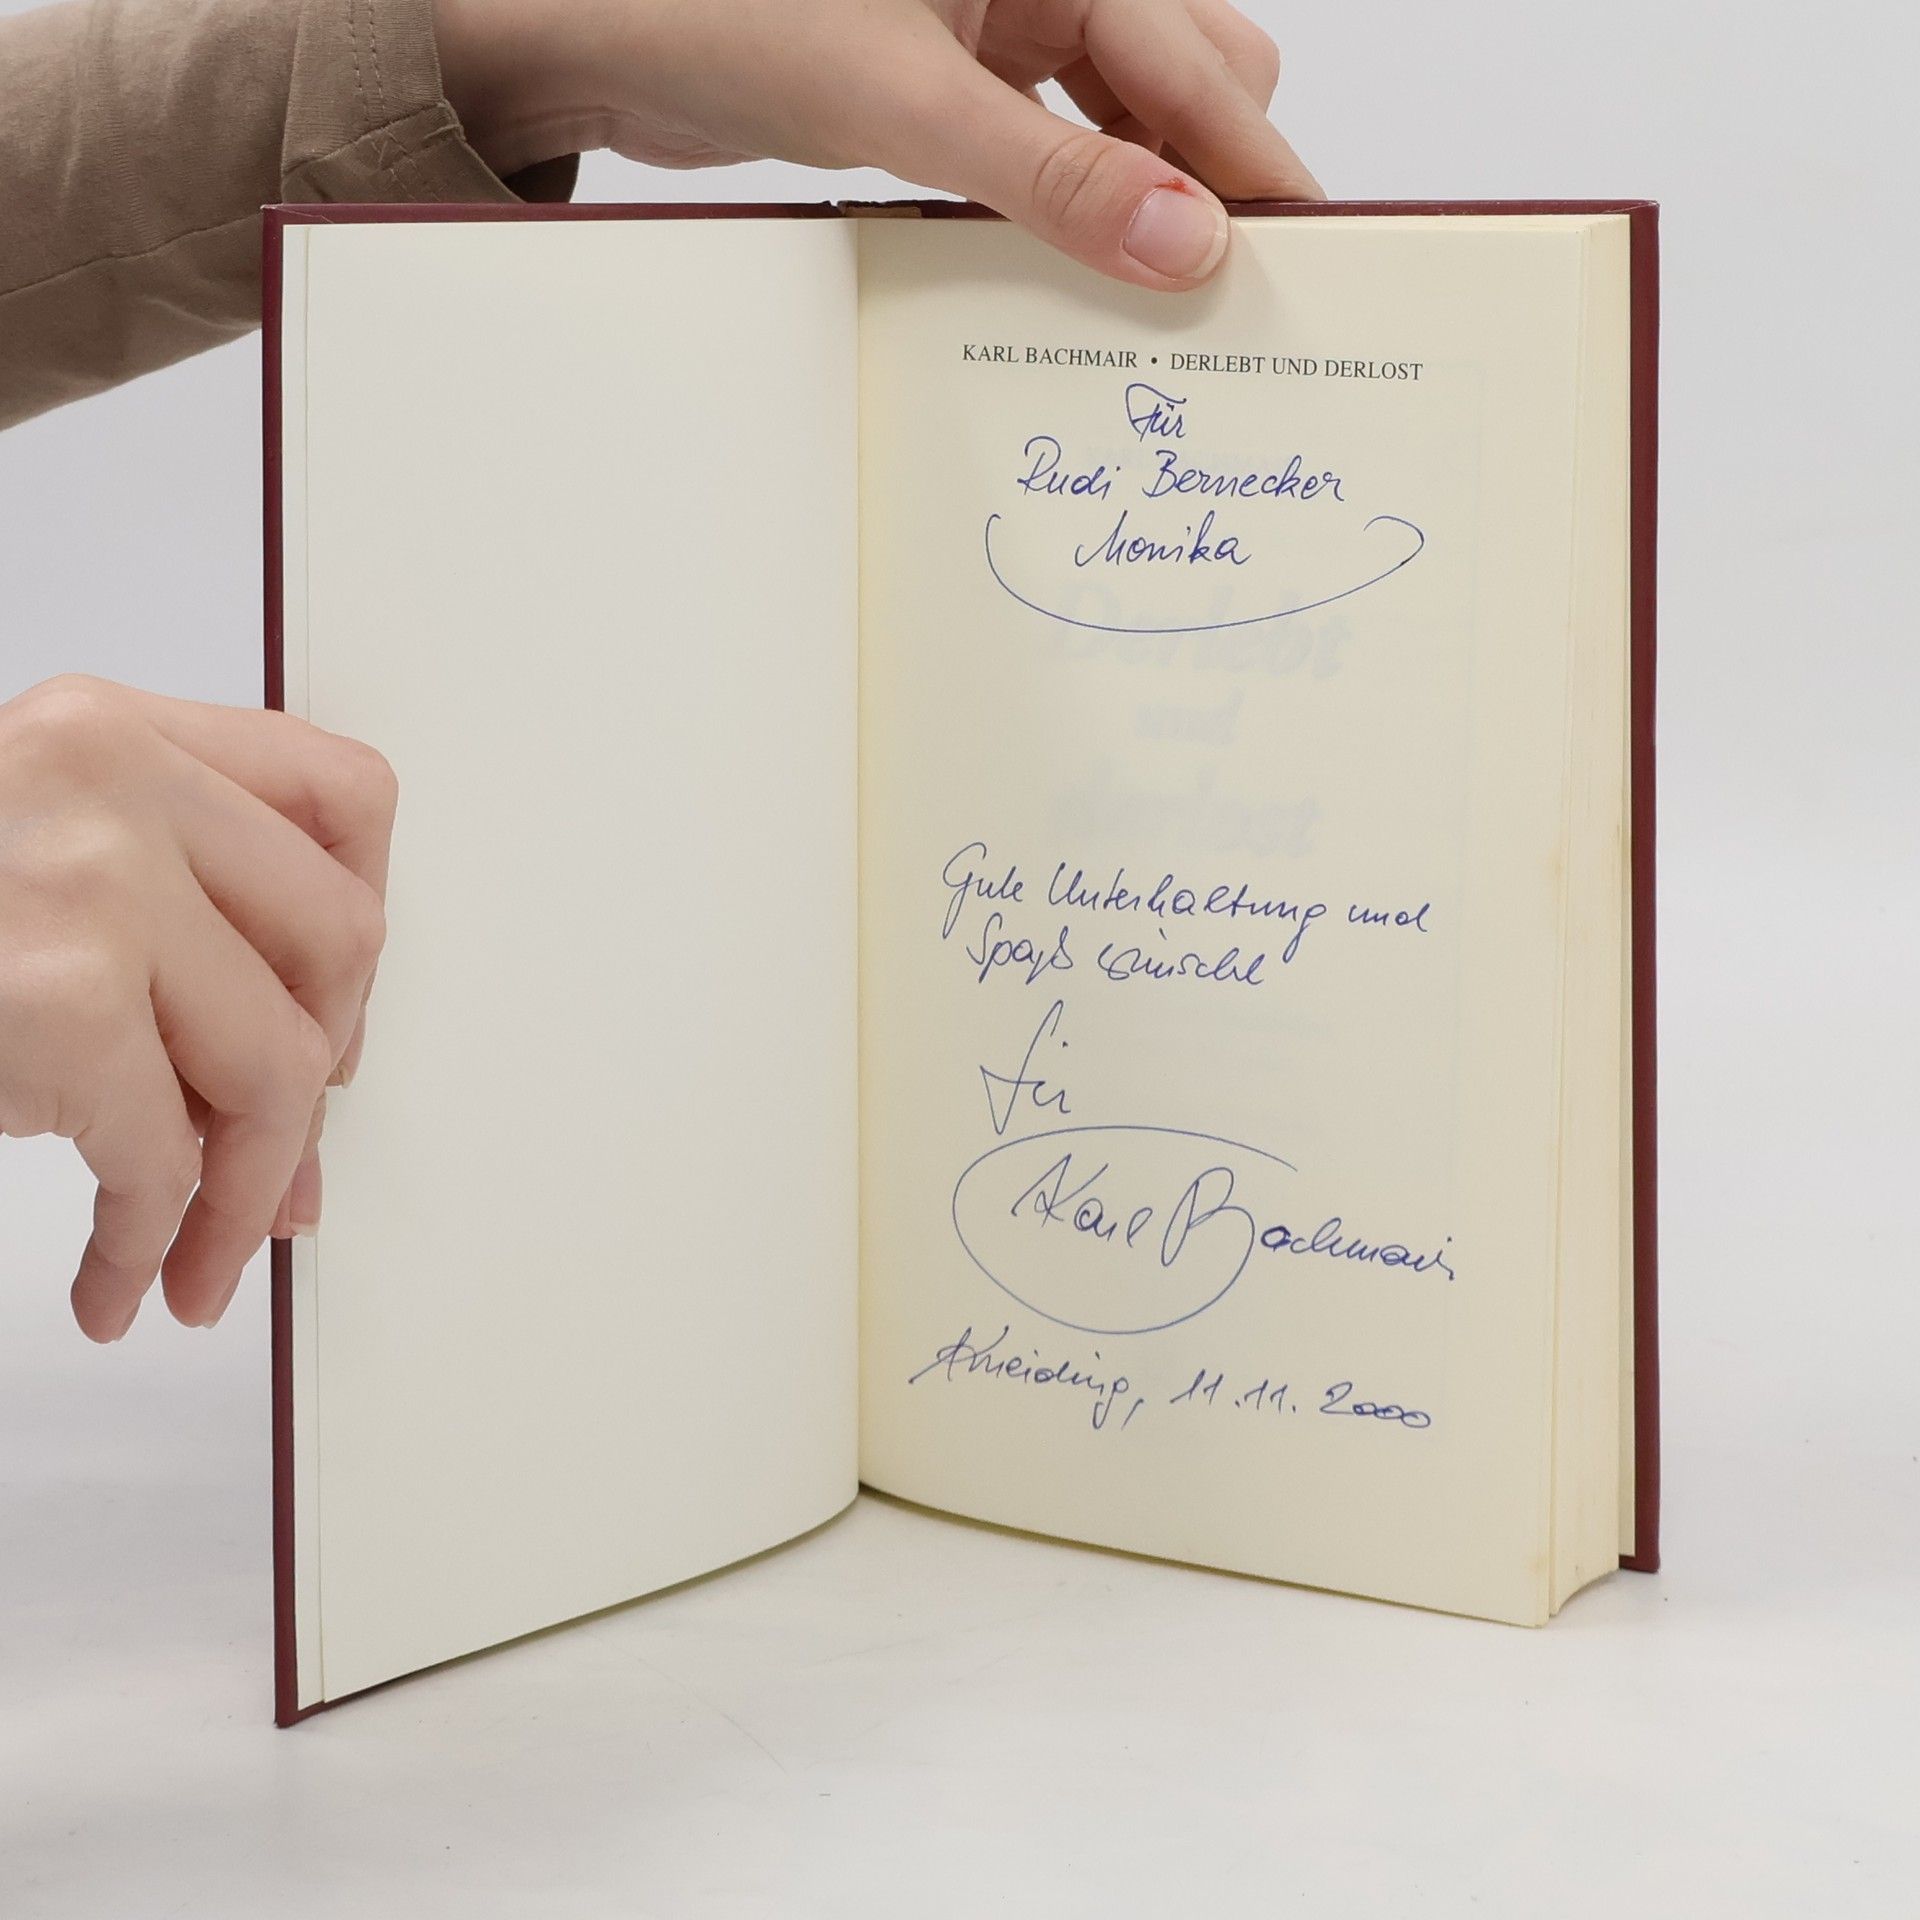 KARL BACHMAIR • DERLEBT UND DERLOST
Für
Rudi Bernecker
Monika
Gute Unterhaltung und
Spaß wünscht
Karl Bachmair
Kneiding, 11.11.2000